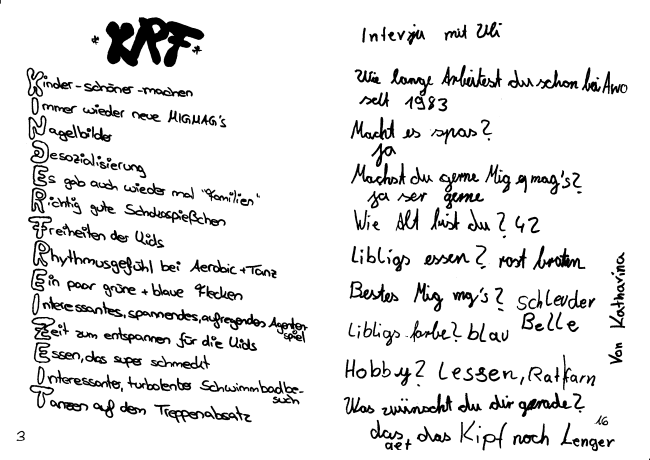 *KRF*
Kinder-schöner-machen
Immer wieder neue MIGMAG's
Nagelbilder
Desozialisierung
Es gab auch wieder mal "Familien"
Richtig gute Schokospießchen
Freiheiten der Kids
Rhythmusgefühl bei Aerobic + Tanz
Ein paar grüne + blaue Flecken
Interessantes, spannendes, aufregendes Agenten
spiel
Zeit zum entspannen für die Kids
Essen, das super schmeckt
Interessanter, turbolenter Schwimmbadbe-
such
Tanzen auf dem Treppenabsatz
3
Interviu mit Uli
Wie lange Arbeitest du schon bei Awo
seit 1983
Macht es spas?
ja
Machst du gerne Mig mag's?
ja ser gerne
Wie Alt bist du? 42
Libligs essen? rost braten
Bestes Mig mag's? Schleuder
Belle
Libligs farbe? blau
Hobby? Lessen, Ratfarn
Was zwünscht du dir gerade?
16
das, das Kipf noch Lenger
Von Katharina